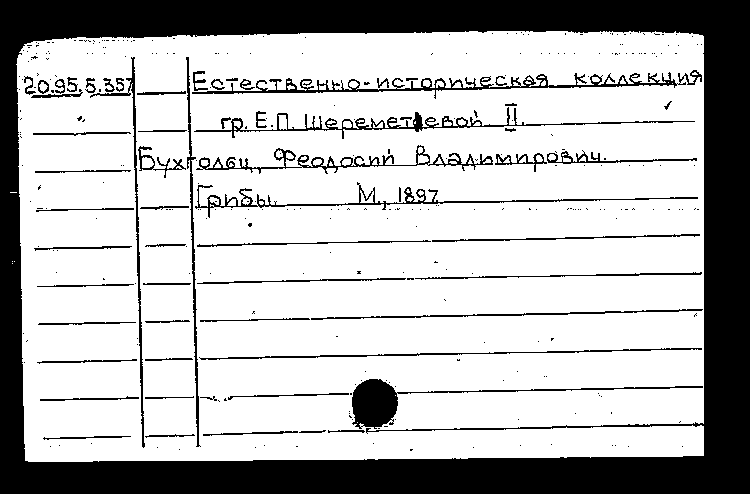 20.95.5.357 Естественно-историческая коллекция
гр. Е.П. Шереметевой II.
Бухгольц, Феодосий Владимирович.
Грибы. М., 1897